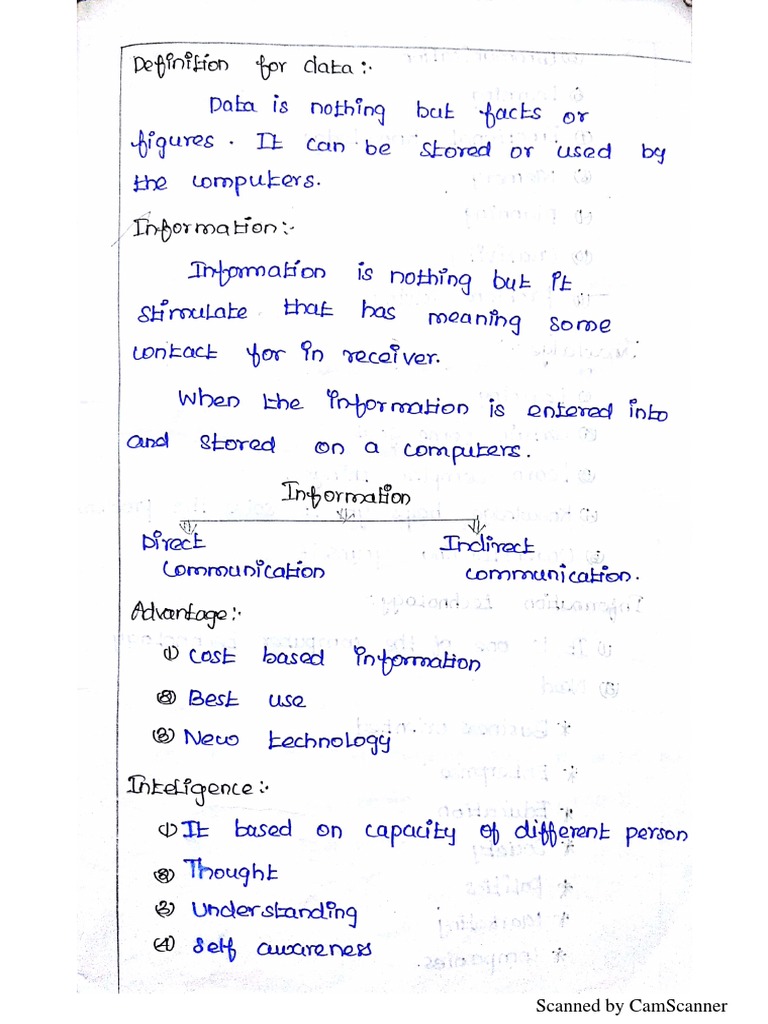 Definition for data:-
Data is nothing but facts or
figures. It can be stored or used by
the computers.
Information:-
Information is nothing but it
stimulate that has meaning some
contact for in receiver.
When the information is entered into
and stored on a computers.
Information
Direct Indirect
Communication communication.
Advantage:-
(1) Cost based information
(2) Best use
(3) New technology
Inteligence:-
(1) It based on capacity of different person
(2) Thought
(3) Understanding
(4) Self awareness
Scanned by CamScanner